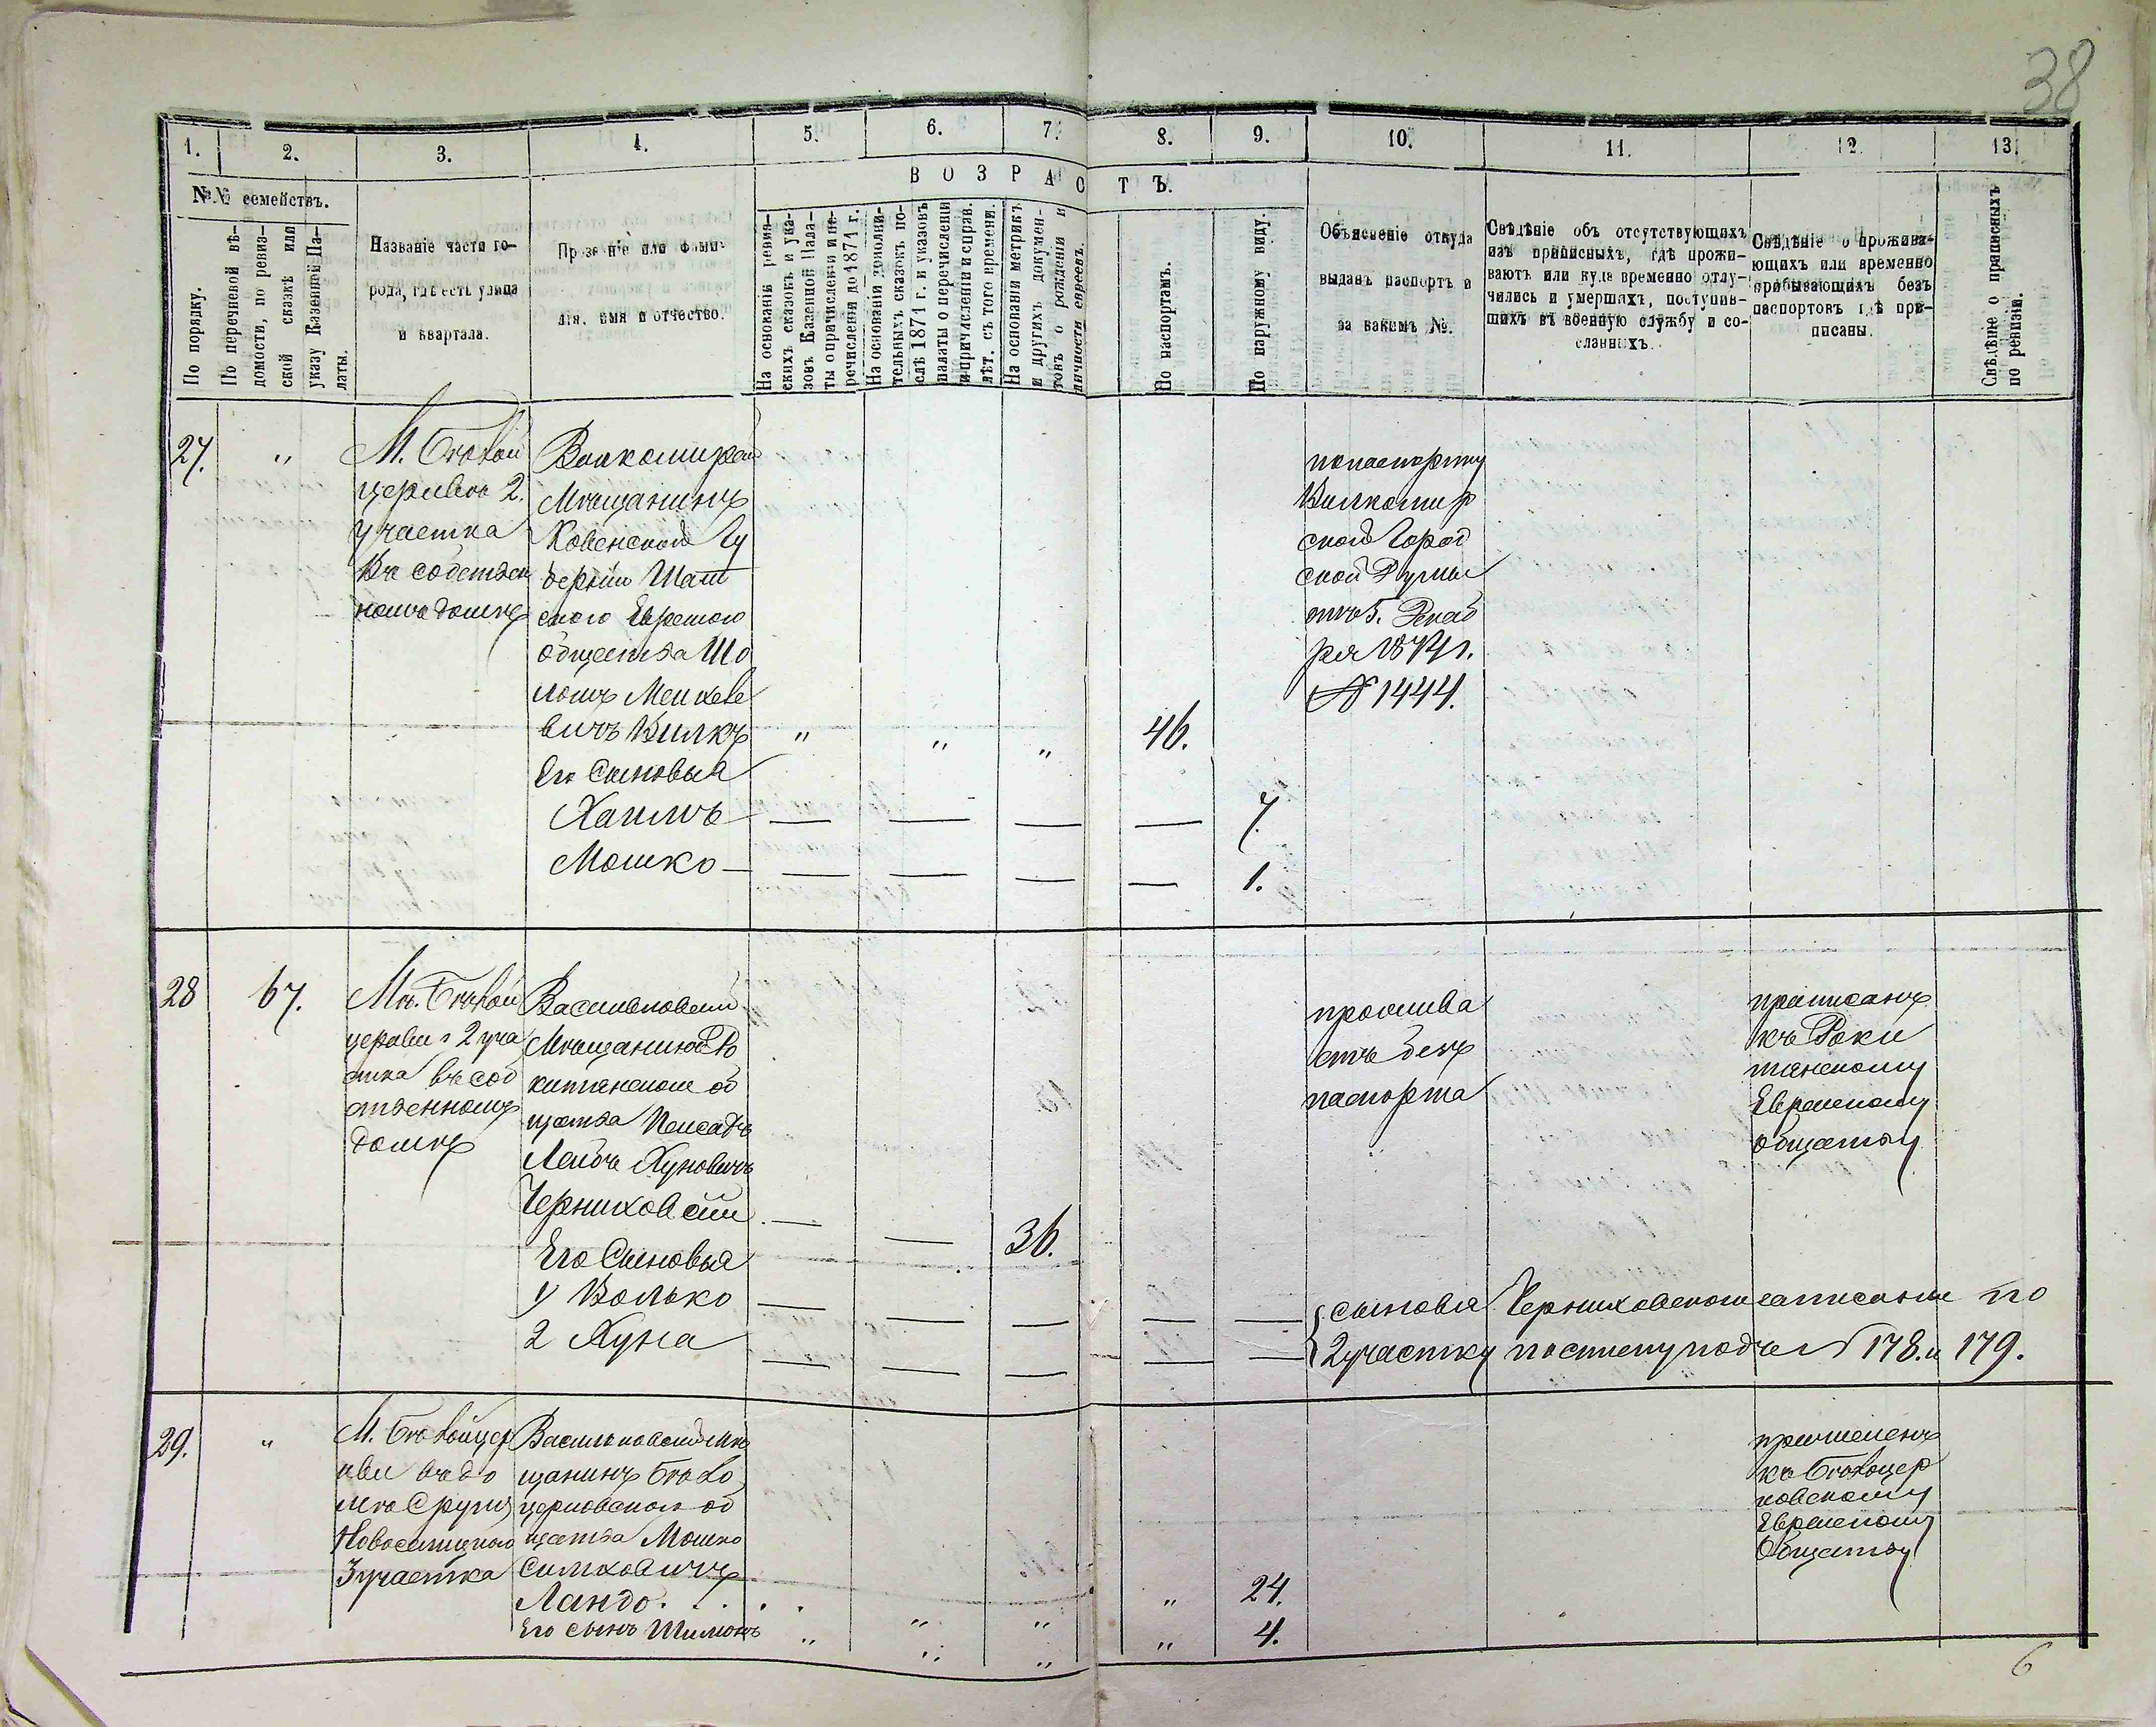 38
1.
2.
3.
4.
5.
6.
7.
8.
9.
10.
11.
12.
13.
№№ семействъ.
ВОЗРАСТЪ.
По порядку.
По перечневой вѣ-
домости, по ревиз-
ской сказкѣ или
указу Казенной Па-
латы.
Названіе части го-
рода, гдѣ есть улица
и квартала.
Прозваніе или фами-
лія, имя и отчество.
На основаніи ревиз-
скихъ сказокъ и ука-
зовъ Казенной Пала-
ты о причисленіи и пе-
речисленіи до 1871 г.
На основаніи дополни-
тельныхъ сказокъ по-
слѣ 1871 г. и указовъ
палаты о перечисленіи
и причисленіи и справ.
лѣт. съ того времени.
На основаніи метрикъ
и другихъ докумен-
товъ о рожденіи и
личности евреевъ.
По паспортамъ.
По наружному виду.
Объясненіе откуда
выданъ паспортъ и
за какимъ №.
Свѣдѣніе объ отсутствующихъ
изъ приписныхъ, гдѣ прожи-
ваютъ или куда временно отлу-
чились и умершихъ, поступив-
шихъ въ военную службу и со-
сланныхъ.
Свѣдѣніе о прожива-
ющихъ или временно
прибывающихъ безъ
паспортовъ гдѣ при-
писаны.
Свѣдѣніе о приписныхъ
по ревизіи.
27.
"
М. Бѣлой
церквѣ 2.
участка
Въ собствен
номъ домѣ
Вилкомирскій
Мѣщанинъ
Ковенской Гу
берніи Шат
ского Еврейского
общества Шо
ломъ
вичъ Вилкъ
" " " 46.
Его Сыновья
Хаимъ — — — — 7.
Мошко — — — — — 1.
по паспорту
Вилкомир
ской Город
ской Думы
отъ 5. Декаб
ря 1874 г.
№ 1444.
28
67.
Мѣ. Бѣлой
церкви 2 уча
стка въ соб
ственномъ
домѣ
Васильковскій
Мѣщанинъ Ро
китянского об
щества Пейсахъ
Лейбъ Хуновичъ
Черниховскій — — 36.
Его Сыновья
1 Волько — — — — —
2 Хуна — — — — —
прожива
етъ безъ
паспорта
приписанъ
къ Роки
тянскому
Еврейскому
обществу
сыновья Черниховского записаны по
2 участку по списку подъ № 178. и 179.
29.
"
М. Бѣлой цер
кви въ до
мѣ Сруля
Новоселицкого
3 участка
Васильковскій мѣ
щанинъ Бѣло
церковского об
щества Мошко
Симховичъ
Ландо. . . . . " " " 24.
Его сынъ Шимонъ " " " " 4.
причисленъ
къ Бѣлоцер
ковскому
Еврейскому
Обществу
6